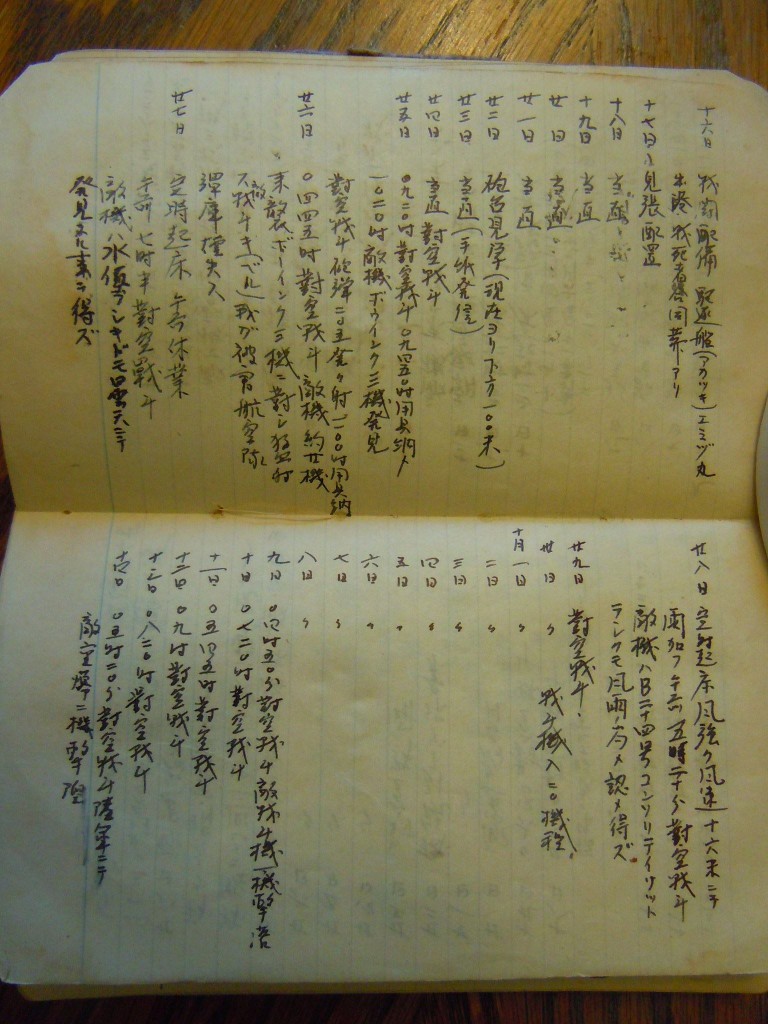 十六日 戦闘配備 駆逐艦(アカツキ)エミヅ丸
戦死者合同葬アリ
十七日 見張配置
十八日 当直
十九日 当直
廿日 当直
廿一日 当直
廿二日 砲台見学(現在ヨリ下方一〇〇米)
廿三日 当直(手紙発信)
廿四日 当直 對空戦斗
廿五日 〇九二〇時對空戦斗 〇九四五時用具納メ
一〇二〇時敵機ボウイング三機発見
對空戦斗砲弾二〇五発ヲ射 一一〇〇時用具納
廿六日 〇四四五時對空戦斗 敵機約廿機
来襲ボーイング三機ニ對シ猛射
ス 敵戦斗キ(ベル)我ガ航空隊
弾庫
廿七日 定時起床 午前休業
午前七時半對空戦斗
敵機ハ水偵ラシキドモ曇天ニテ
発見スル事ヲ得ズ
廿八日 定時起床風強ク風速十六米ニテ
雨加フ午前五時二十分對空戦斗
敵機ハB二十四号コンソリデイテット
ラシクモ風雨ノ為メ認メ得ズ
廿九日 對空戦斗
卅日 〃 戦斗機入二〇機程
十月一日 〃
二日 〃
三日 〃
四日 〃
五日 〃
六日 〃
七日 〃
八日 〃
九日 〇四時五〇分對空戦斗敵戦斗機一機撃落
十日 〇七二〇時對空戦斗
十一日 〇五四五時對空戦斗
十二日 〇九時對空戦斗
十三日 〇八二〇時對空戦斗
十四日 〇五時二〇分對空戦斗陸軍ニテ
敵空爆ア二機撃墜